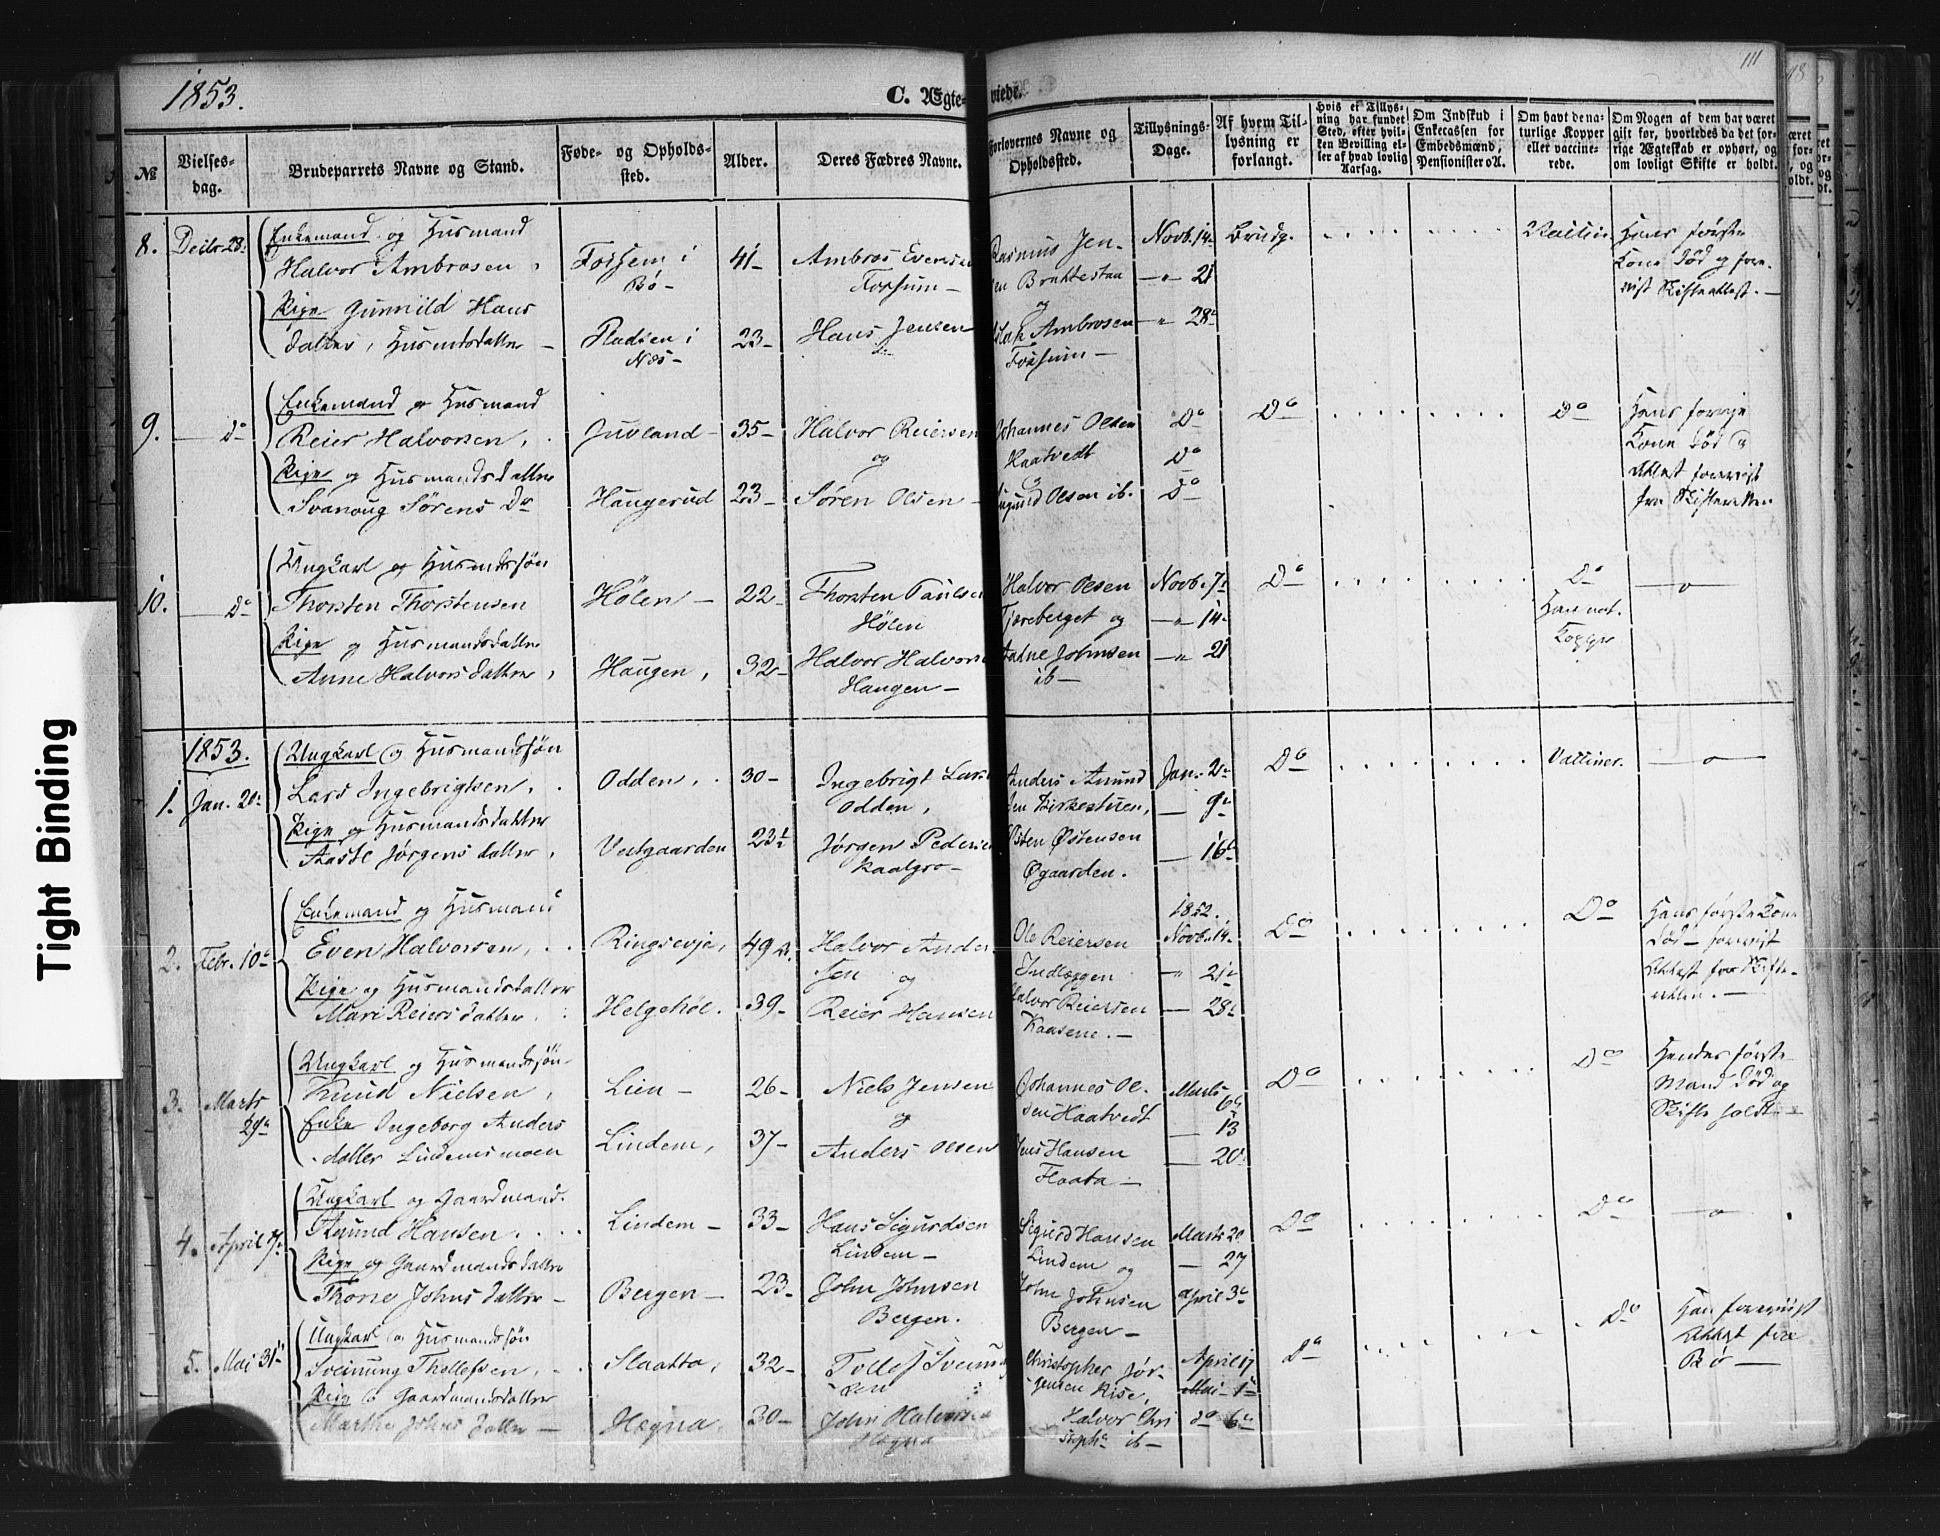 1853.
C. Ægte-
viede.
111
№
Vielses-
dag.
Brudeparrets Navne og Stand.
Føde- og Opholds-
sted.
Alder.
Deres Fædres Navne.
Forlovernes Navne og
Opholdssted.
Tillysnings-
Dage.
Af hvem Til-
lysning er
forlangt.
Hvis ei Tillys-
ning har fundet
Sted, efter hvil-
ken Bevilling el-
ler af hvad lovlig
Aarsag.
Om Indskud i
Enkecassen for
Embedsmænd,
Pensionister o. A.
Om havt de na-
turlige Kopper
eller vaccine-
rede.
Om Nogen af dem har været
gift før, hvorledes da det for-
rige Ægteskab er ophørt, og
om lovligt Skifte er holdt.
8. Decbr 28. Enkemand og Husmand
Halvor Ambrosen, Forsem i Bø - 41 - Ambros Evensen Forsum -
Rasmus Jen- sen Brattestaa og Ambrosen Forsum -
Novb. 14 - " 21 - " 28 Brudg. Vaccin. Hans første Kone død og
Pige Gunnild Hans
datter, Husmdsdatter - i Næs - 23 - Hans Jensen
9. - Do Enkemand og Husmand
Reier Halvorsen, Juvland - 35 - Halvor Reiersen og
Johannes Olsen Haatvedt Olsen ib. Do Do Do Do Do Hans forrige Kone død
Attest forevist fra Skifteretten
Pige og Husmandsdatter
Svanoug Sørens Dr Haugerud 23 - Søren Olsen -
10. - Do Ungkarl og Husmdssøn
Thorsten Thorstensen Hølen - 22 - Thorsten Paulsen Hølen
Halvor Olsen Tjæreberget og Aadne Johnsen ib - Novb. 7 - " 14 - " 21 Do Do Han nat. Kopper - o -
Pige og Husmandsdatter
Anne Halvorsdatter, Haugen, 32 - Halvor Halvorsen Haugen -
1853.
1. Jan. 20 Ungkarl og Husmandssøn
Lars Ingebrigtsen, Odden, 30 - Ingebrigt Lars Odden,
Anders Amund sen Birkestuen, Østen Østensen Øgaarden. Jan. 2 - 9 - 16 Do Vacciner. - o -
Pige og Husmandsdatter
Aaste Jørgensdatter, Vestgaarden 23½ Jørgen Pedersen Kaalgro -
2. Febr. 10 Enkemand og Husmand
Even Halvorsen, Ringsevje, 49 Halvor Ander sen og
Ole Reiersen Indlæggen Halvor Reiersen Kaasene. - 1852. Novb. 14 - " 21 - 28 Do Do Hans første Kone død - forevist
Attest fra Skifte-
retten. -
Pige og Husmandsdatter
Mari Reiersdatter, Helgehøl. 39 - Reier Hansen
3. Marts 29 Ungkarl og Husmandssøn
Knud Nielsen, Lien - 26 - Niels Jensen og
Johannes Ol- sen Haatvedt Jens Hansen Flaata - Marts 6 - 13 - 20 Do Do Hendes første Mand død og
Skifte holdt -
Enke Ingeborg Anders
datter Lindemsmoen Lindem, 37 - Anders Olsen
4. April 7 Ungkarl og Gaardmand.
Amund Hansen. Lindem - 33 - Hans Sigurdsen Lindem -
Sigurd Hansen Lindem og John Johnsen Bergen - Marts 20 - 27 April 3 Do Do - o -
Pige og Gaardmandsdatter
Thone Johnsdatter - Bergen - 23 - John Johnsen Bergen.
5. Mai 31 Ungkarl og Husmandssøn
Sveinung Thollefsen, Slaatta, 32 - Tollef Sveinung sen
Christopher Jør- gensen Rise, Halvor Chri stoph ib - April 17 Mai - 1 do 6 Do Do Han forevist Attest fra
Bø -
Pige og Gaardmandsdatter
Marthe Johnsdatter - Hegna, 30 - John Halvorsen Hegna
Tight Binding